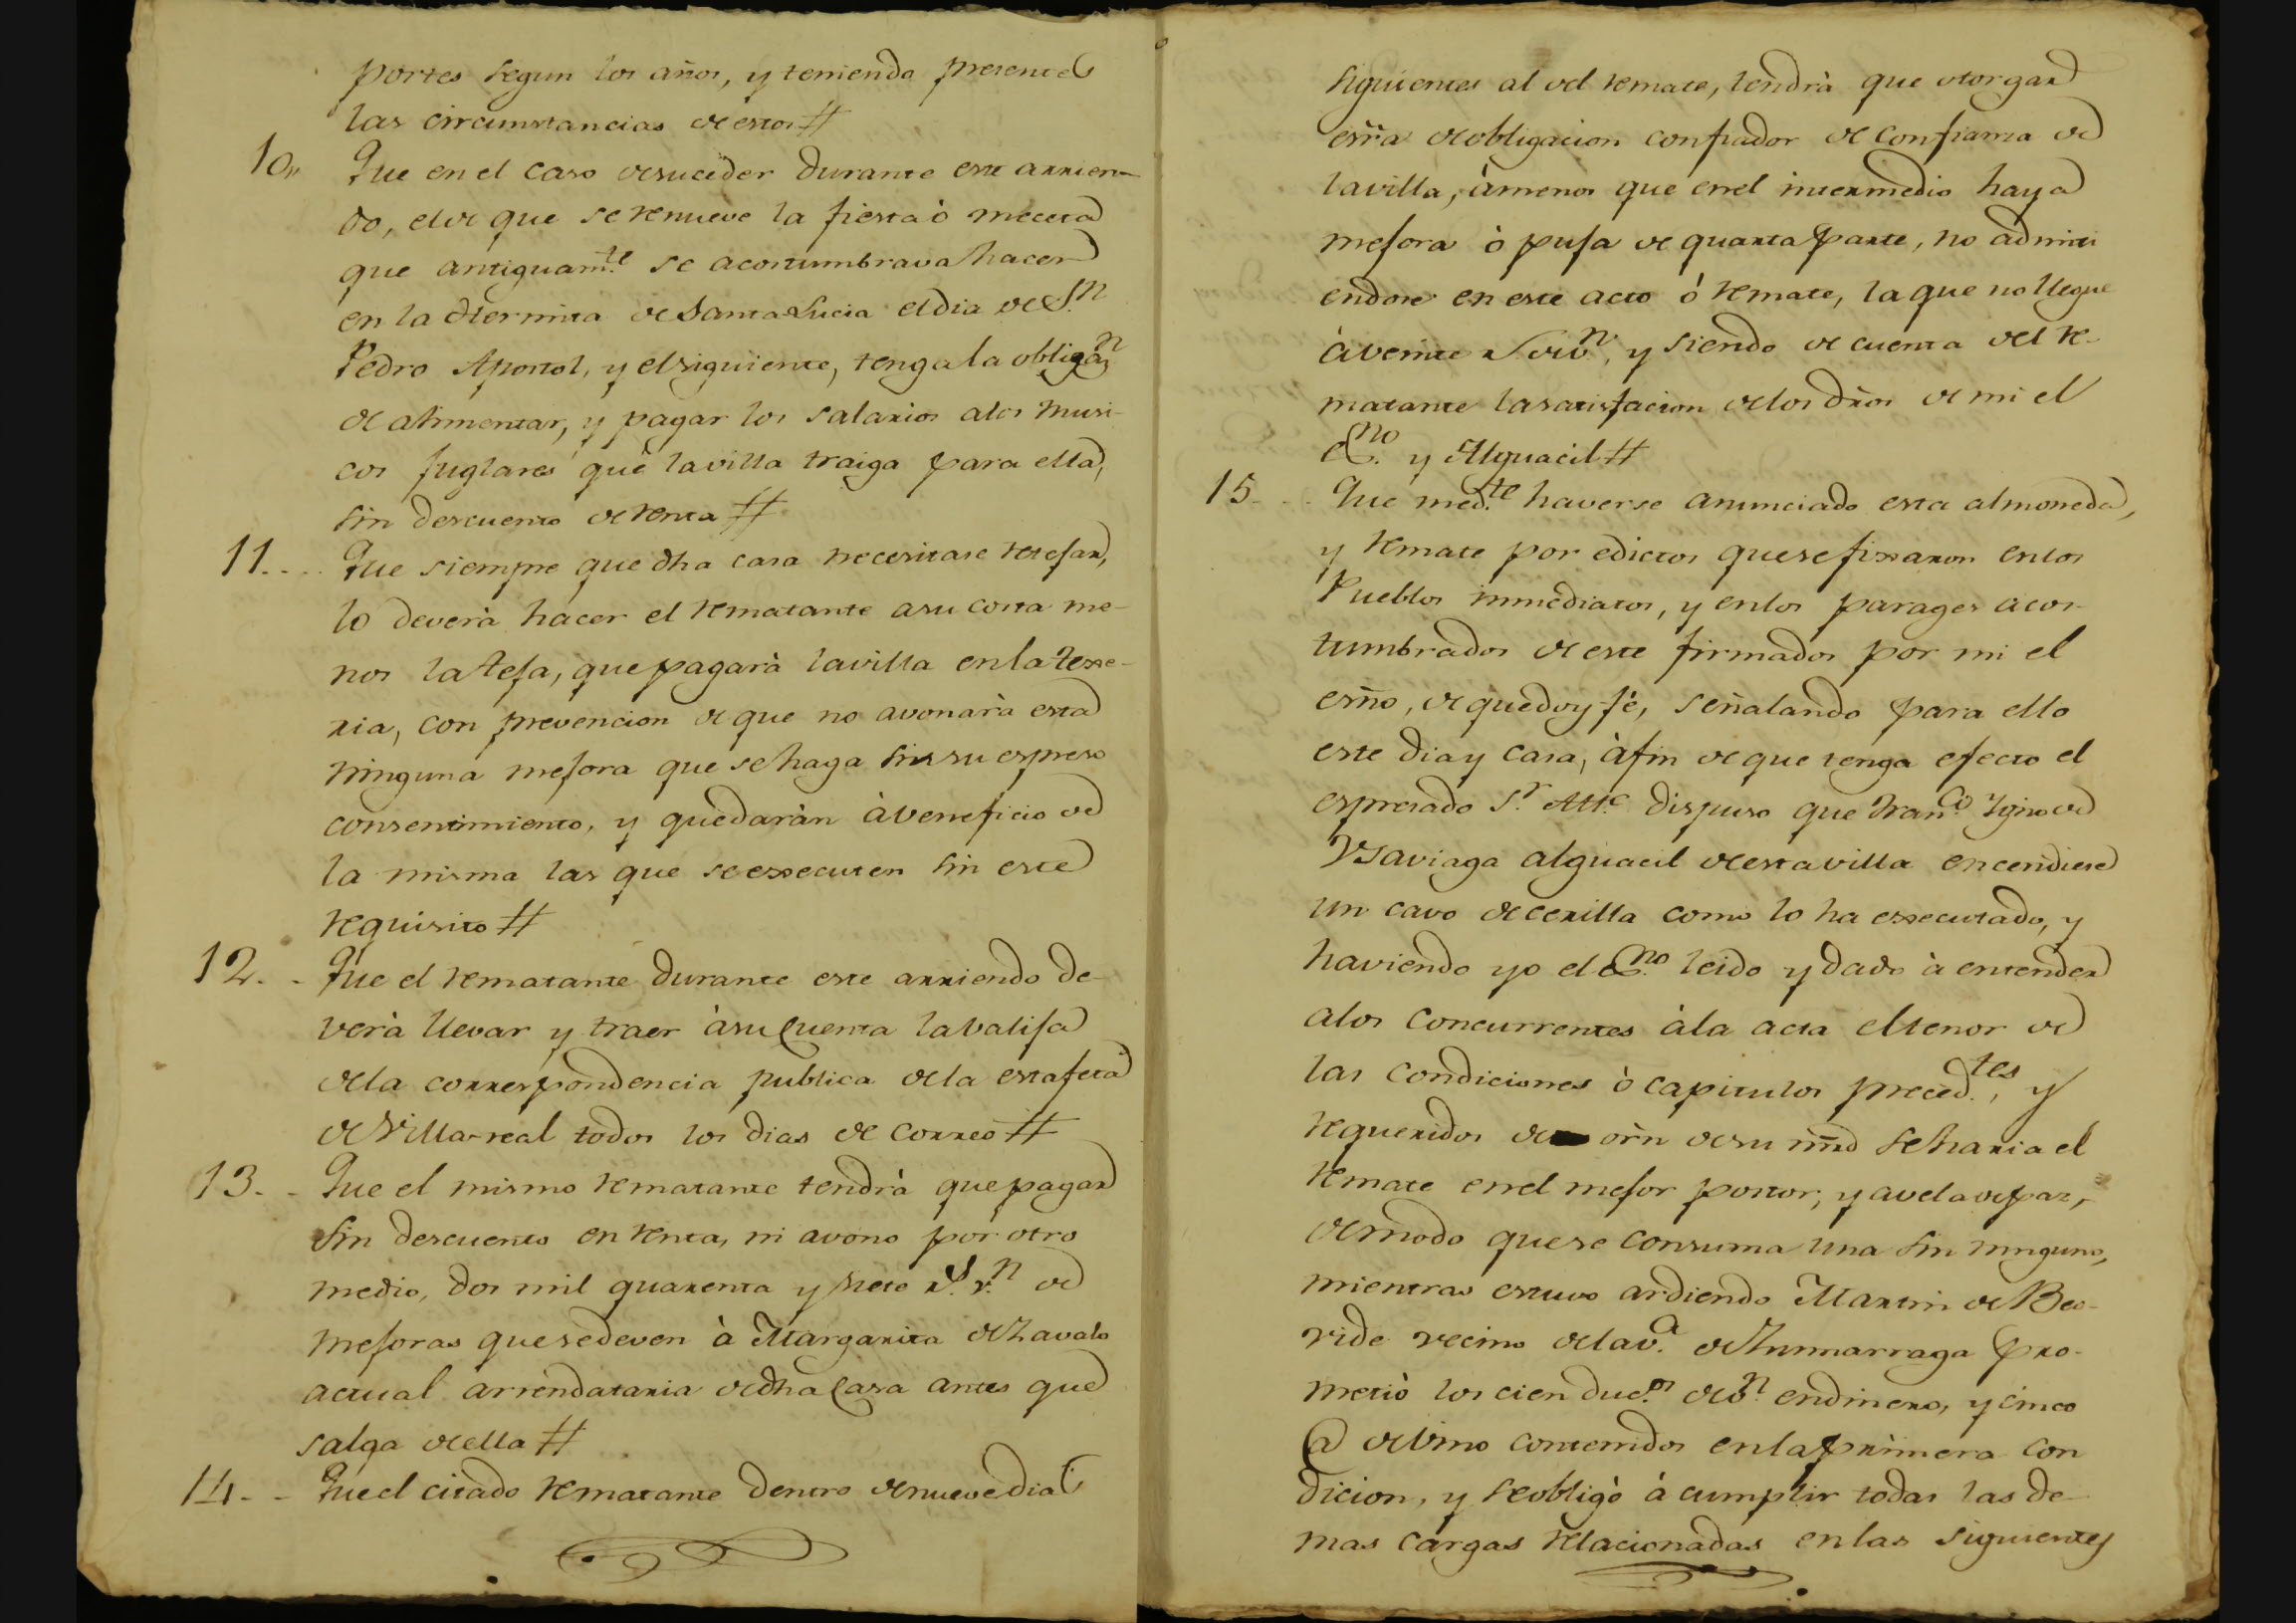 portes segun los años, y teniendo presente
las circunstancias de estos #
10,, Que en el caso de suceder durante este arrien-
do, el de que se renueve la fiesta ò meceta
que antiguam.te se acostumbrava hacer
en la Hermita de Santa Lucia el dia de S.n
Pedro Apostol, y el siguiente, tenga la obligaz.n
de alimentar, y pagar los salarios a los musi-
cos juglares que la villa traiga para ella,
sin descuento de renta #
11.... Que siempre que dha casa necesitase retejar,
lo deverà hacer el rematante a su costa me-
nos la teja, que pagarà la villa en la texe-
ria, con prevencion de que no avonarà esta
ninguna mejora que se haga sin su espreso
consentimiento, y quedaràn à veneficio de
la misma las que se executen sin este
requisito #
12. - Que el rematante durante este arriendo de-
verà llevar y traer à su cuenta la valija
de la correspondencia publica de la estafeta
de Villa-real todos los dias de correo #
13. - Que el mismo rematante tendrà que pagar
sin descuento en renta, ni avono por otro
medio, dos mil quarenta y siete r.s v.n de
mejoras que se deven à Margarita de Zavalo
actual arrendataria de dha Casa antes que
salga de ella #
14. - Que el citado rematante dentro de nueve dias
siguientes al del remate, tendrà que otorgar
esrra de obligacion con fiador de confianza de
la villa, à menos que en el intermedio haya
mejora ò puja de quarta parte, no admiti
endose en este acto ó remate, la que no llegue
à veinte r.s de v.n, y siendo de cuenta del re-
matante la satisfacion de los dros de mi el
es.no y Alguacil #
15 - - Que med.te haverse anunciado esta almoneda,
y remate por edictos que se fixaron en los
Pueblos inmediatos, y en los parages acos-
tumbrados de este firmados por mi el
esño, de que doy fé, señalando para ello
este dia y casa, à fin de que tenga efecto el
espresado S.r Alc.e dispuso que Fran.co Ygn.o de
Vsaviaga alguacil de esta villa encendiese
un cavo de cerilla como lo ha executado, y
haviendo yo el es.no leido y dado à entender
a los concurrentes à la acta el tenor de
las condiciones ò capitulos preced.tes, y
requeridos de orn de su mrd se haria el
remate en el mejor postor, y a vela de par,
de modo que se consuma una sin ninguno,
mientras estuvo ardiendo Martin de Beo-
vide vecino de la v.a de Zumarraga pro-
metiò los cien duc.os de v.n en dinero, y cinco
@ de vino contenidos en la primera con
dicion, y se obligò à cumplir todas las de-
mas cargas relacionadas en las siguientes